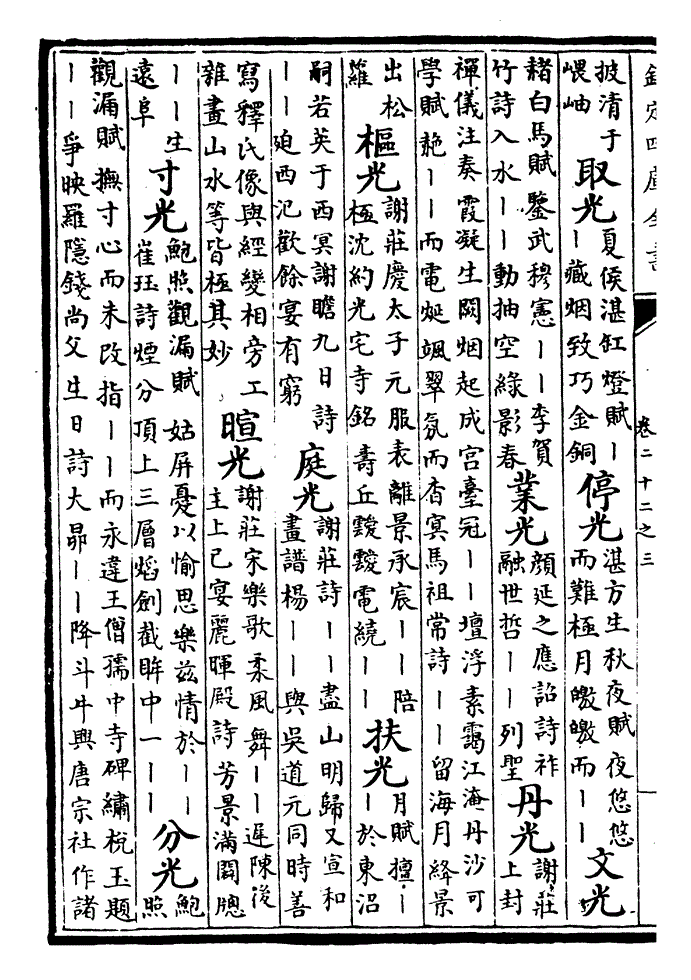 欽定四庫全書
卷二十二之三
披清于嵎岫取光夏侯湛缸燈賦丨丨藏烟致巧金銅停光湛方生秋夜賦夜悠悠而難極月皦皦而丨丨文光
赭白馬賦鑒武穆憲丨丨李賀竹詩入水丨丨動抽空綠影春業光顔延之應詔詩祚融世哲丨丨列聖丹光謝莊上封
禪儀注奏霞凝生闕烟起成宮臺冠丨丨壇浮素靄江淹丹沙可學賦艴丨丨而電烻颯翠氛而杳冥馬祖常詩丨丨留海月絳景
出松羅樞光謝莊慶太子元服表離景承宸丨丨陪極沈約光宅寺銘壽丘靉靉電繞丨丨扶光月賦擅丨丨於東沼
嗣若英于西冥謝瞻九日詩丨丨迫西汜歡餘宴有窮庭光謝莊詩丨丨盡山明歸又宣和畫譜楊丨丨與吳道元同時善
寫釋氏像與經變相旁工雜畫山水等皆極其妙暄光謝莊宋樂歌柔風舞丨丨遲陳後主上巳宴麗暉殿詩芳景滿闢牕
丨丨生遠阜寸光鮑照觀漏賦姑屏憂以愉思樂兹情於丨丨崔珏詩煙分頂上三層焰劍截眸中一丨丨分光鮑照
觀漏賦撫寸心而未改指丨丨而永違王僧孺中寺碑繡棁玉題丨丨爭映羅隱錢尚父生日詩大昴丨丨降斗牛興唐宗社作諸